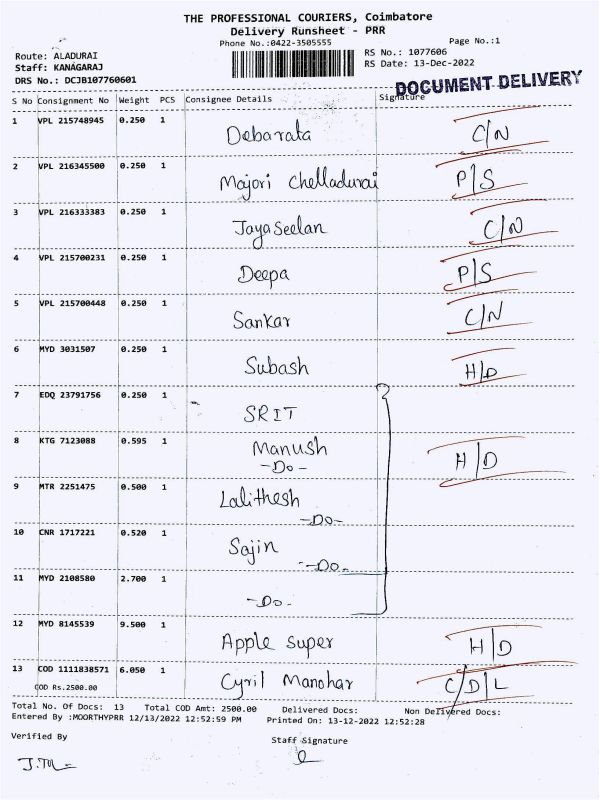 THE PROFESSIONAL COURIERS, Coimbatore
Delivery Runsheet - PRR
Phone No.:0422-3505555 Page No.:1
Route: ALADURAI RS No.: 1077606
Staff: KANAGARAJ RS Date: 13-Dec-2022
DRS No.: DCJB107760601
DOCUMENT DELIVERY
S No Consignment No Weight PCS Consignee Details Signature
1 VPL 215748945 0.250 1 Debarata C/N
2 VPL 216345500 0.250 1 Majori Chelladurai P/S
3 VPL 216333383 0.250 1 Jayaseelan C/N
4 VPL 215700231 0.250 1 Deepa P/S
5 VPL 215700448 0.250 1 Sankar C/N
6 MYD 3031507 0.250 1 Subash H/D
7 EDQ 23791756 0.250 1 SRIT
8 KTG 7123088 0.595 1 Manush H/D
-Do-
9 MTR 2251475 0.500 1 Lalithesh
-Do-
10 CNR 1717221 0.520 1 Sajin
-Do-
11 MYD 2108580 2.700 1 -Do-
12 MYD 8145539 9.500 1 Apple Super H/D
13 COD 1111838571 6.050 1 Cyril Manohar C/D/L
COD Rs.2500.00
Total No. Of Docs: 13 Total COD Amt: 2500.00 Delivered Docs: Non Delivered Docs:
Entered By :MOORTHYPRR 12/13/2022 12:52:59 PM Printed On: 13-12-2022 12:52:28
Verified By Staff Signature